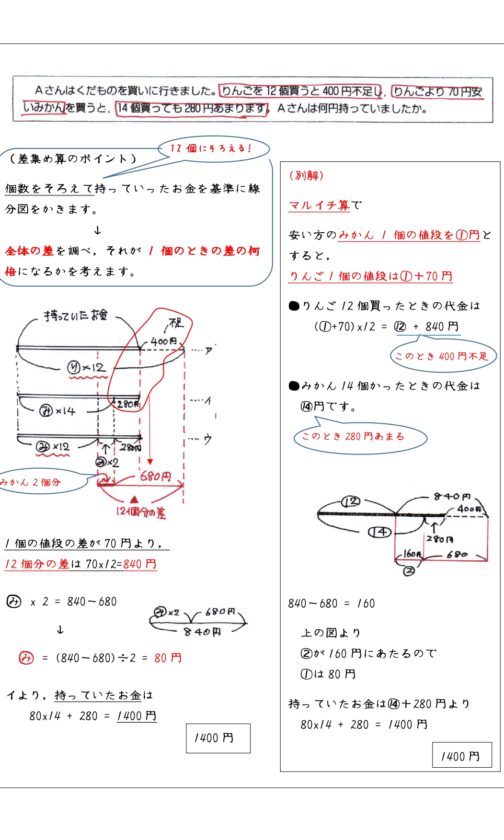 Aさんはくだものを買いに行きました。りんごを12個買うと400円不足し，りんごより70円安
いみかんを買うと，14個買っても280円あまります。Aさんは何円持っていましたか。
（差集め算のポイント）
12個にそろえる！
個数をそろえて持っていったお金を基準に線
分図をかきます。
↓
全体の差を調べ，それが1個のときの差の何
倍になるかを考えます。
持っていたお金
不足
400円
ア
り×12
み×14
280円
イ
み×12
280円
ウ
み×2
みかん2個分
680円
12個分の差
1個の値段の差が70円より，
12個分の差は70x12=840円
み x 2 = 840−680
↓
み×2
680円
840円
み = (840−680)÷2 = 80円
イより，持っていたお金は
80x14 + 280 = 1400円
1400円
（別解）
マルイチ算で
安い方のみかん1個の値段を①円と
すると，
りんご1個の値段は①+70円
●りんご12個買ったときの代金は
(①+70)x12 = ⑫ + 840円
このとき400円不足
●みかん14個かったときの代金は
⑭円です。
このとき280円あまる
⑫
840円
400円
⑭
280円
160円
680
②
840−680 = 160
上の図より
②が160円にあたるので
①は80円
持っていたお金は⑭+280円より
80x14 + 280 = 1400円
1400円